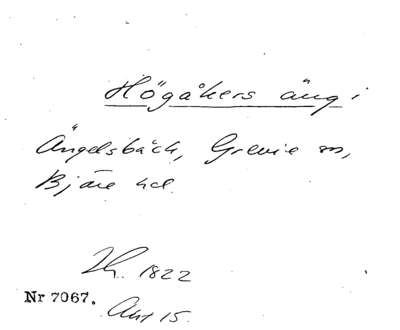 Högåkers äng i
Ängelsbäck, Grevie sn,
Bjäre hd.
Lh. 1822
Nr 7067.
Akt 15.